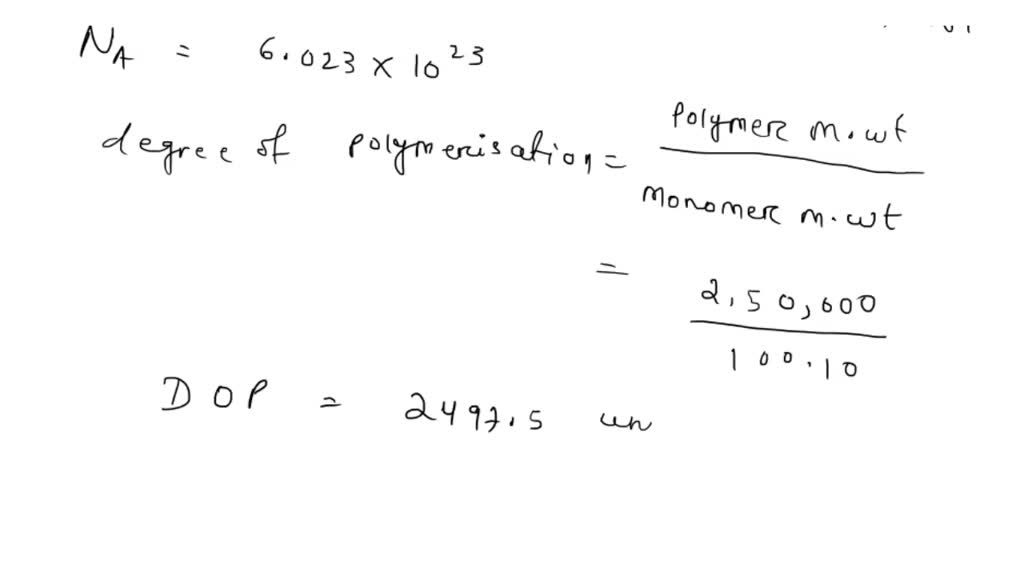 N_A = 6.023 × 10^23
Polymer m.wt
degree of polymerisation =
Monomer m.wt
=
2,50,000
100.10
DOP = 2497.5 un